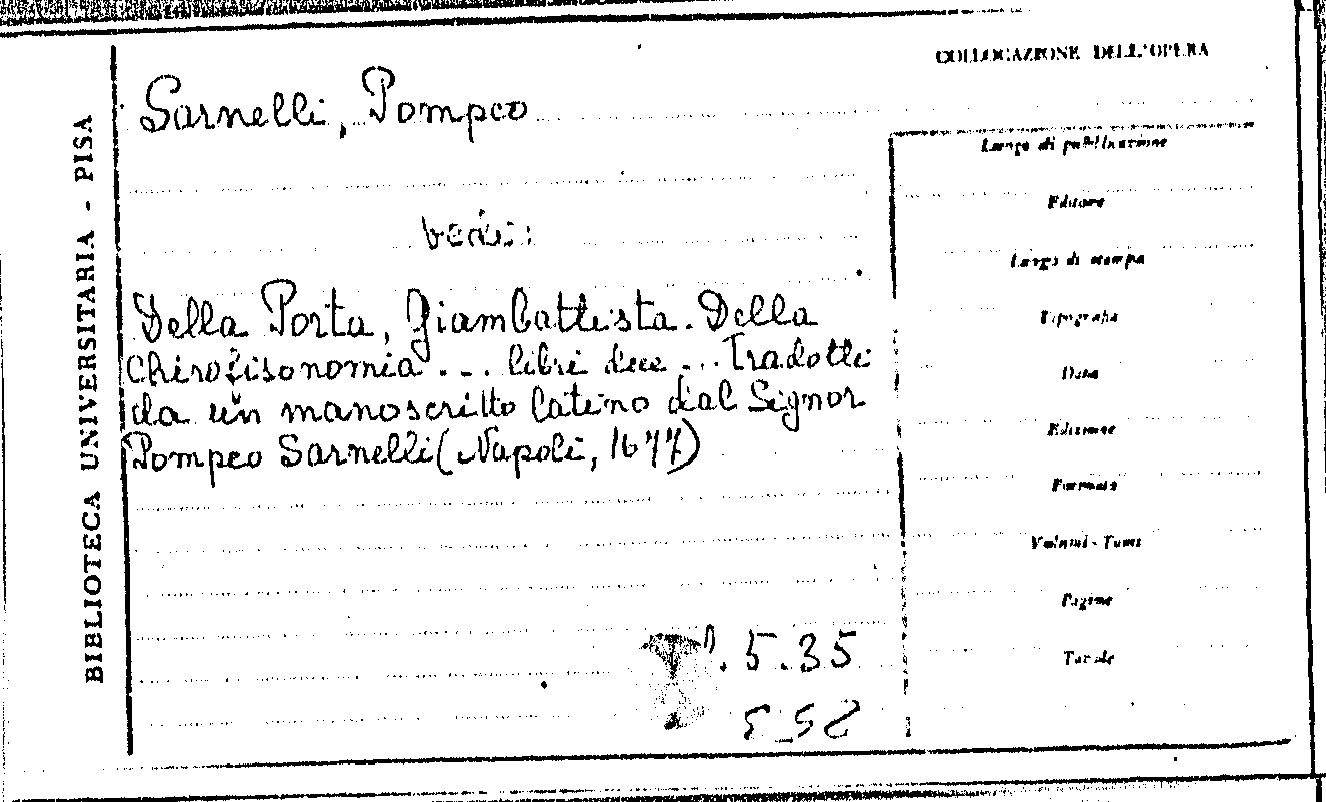 COLLOCAZIONE DELL'OPERA
BIBLIOTECA UNIVERSITARIA - PISA
Sarnelli, Pompeo
vedi:
Della Porta, Giambattista. Della
Chirofisonomia ... libri due ... Tradotti
da un manoscritto latino dal Signor
Pompeo Sarnelli (Napoli, 1677)
.5.35
Luogo di pubblicazione
Editore
Luogo di stampa
Tipografia
Data
Edizione
Formato
Volumi - Tomi
Pagine
Tavole